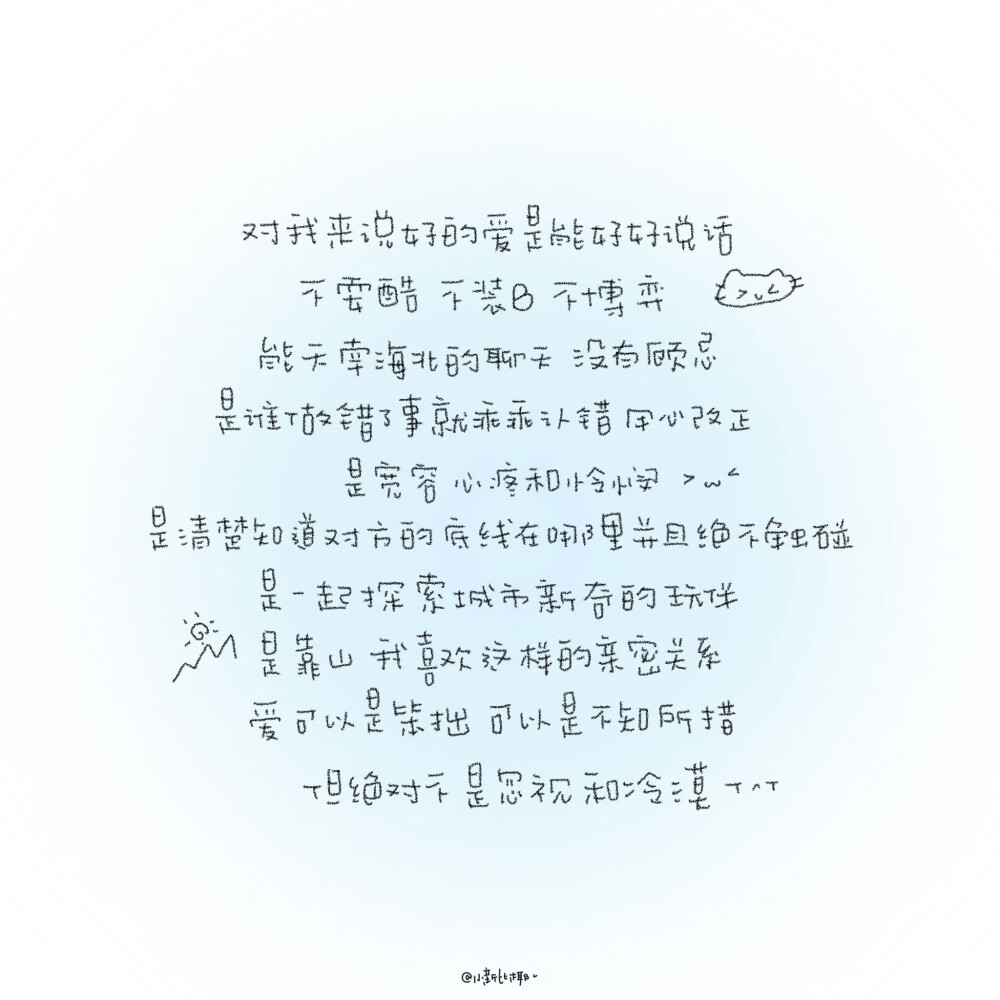 对我来说好的爱是能好好说话
不耍酷 不装B 不博弈
能天南海北的聊天 没有顾忌
是谁做错了事就乖乖认错 用心改正
是宽容 心疼和怜悯 >ω<
是清楚知道对方的底线在哪里并且绝不触碰
是一起探索城市新奇的玩伴
是靠山 我喜欢这样的亲密关系
爱可以是笨拙 可以是不知所措
但绝对不是忽视和冷漠 T^T